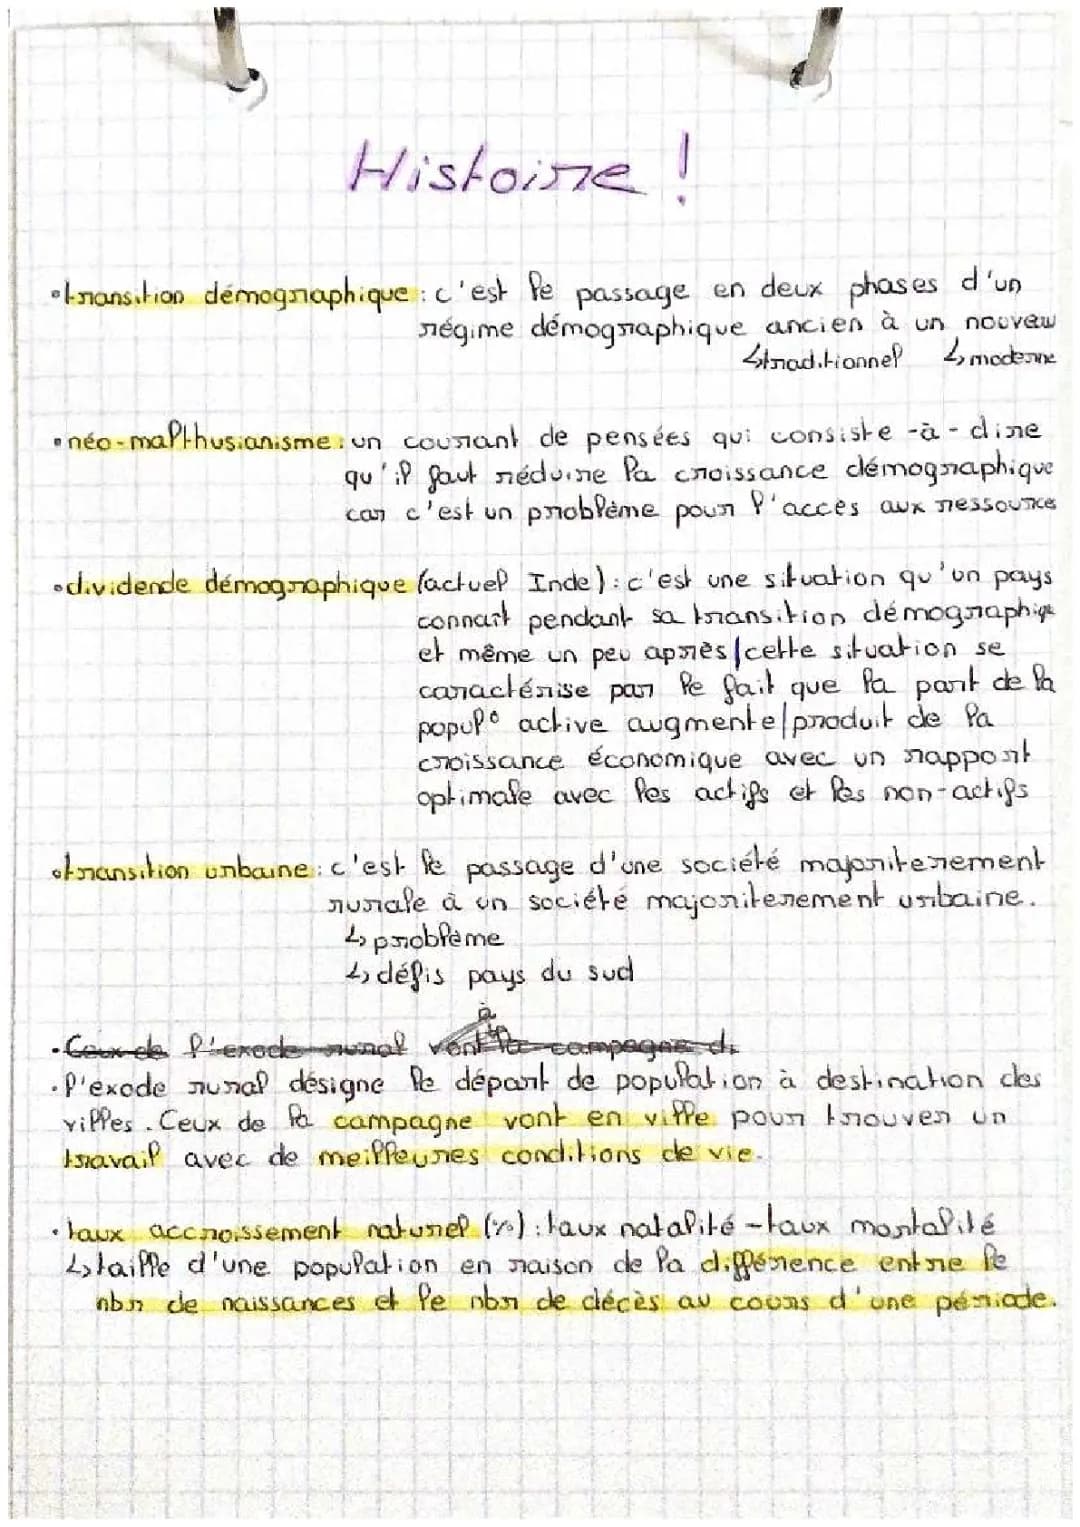 Histoire !
• transition démographique : c'est le passage en deux phases d'un
régime démographique ancien à un nouveau
↳ traditionnel ↳ moderne
• néo-malthusianisme : un courant de pensées qui consiste-à-dire
qu'il faut réduire la croissance démographique
car c'est un problème pour l'accès aux ressources
• dividende démographique (actuel Inde) : c'est une situation qu'un pays
connait pendant sa transition démographique
et même un peu après / cette situation se
caractérise par le fait que la part de la
popul° active augmente / produit de la
croissance économique avec un rapport
optimale avec les actifs et les non-actifs
• transition urbaine : c'est le passage d'une société majoriterement
rurale à un société majoriterement urbaine.
↳ problème
↳ défis pays du sud
à
• Ceux de l'exode rural vont la campagne d
• l'éxode rural désigne le départ de population à destination des
villes. Ceux de la campagne vont en ville pour trouver un
travail avec de meilleures conditions de vie.
• taux accroissement naturel (%) : taux natalité - taux mortalité
↳ taille d'une population en raison de la différence entre le
nbr de naissances et le nbr de décès au cours d'une période.